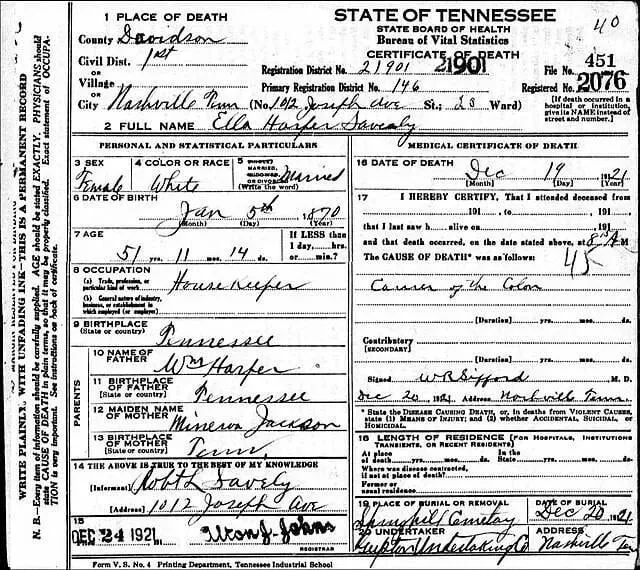 1 PLACE OF DEATH
County Davidson
Civil Dist. 1st
OR
Village
OR
City Nashville Tenn (No. 1012 Joseph Ave St.; 23 Ward)
2 FULL NAME Ella Harper Savely
STATE OF TENNESSEE
STATE BOARD OF HEALTH
Bureau of Vital Statistics
CERTIFICATE OF DEATH
40
Registration District No. 21901 21901
Primary Registration District No. 146
File No. 451
Registered No. 2076
[If death occurred in a
hospital or institution,
give its NAME instead of
street and number.]
PERSONAL AND STATISTICAL PARTICULARS
3 SEX
Female
4 COLOR OR RACE
White
5
MARRIED,
WIDOWED,
OR DIVORCED
(Write the word)
Married
6 DATE OF BIRTH
Jan 5th 1870
(Month) (Day) (Year)
7 AGE
51 yrs. 11 mos. 14 ds.
If LESS than
1 day,....hrs.
or......min.?
8 OCCUPATION
(a) Trade, profession, or
particular kind of work
(b) General nature of industry,
business, or establishment in
which employed (or employer)
House Keeper
9 BIRTHPLACE
(State or country)
Tennessee
PARENTS
10 NAME OF
FATHER
Wm Harper
11 BIRTHPLACE
OF FATHER
[State or country]
Tennessee
12 MAIDEN NAME
OF MOTHER
Minerva Jackson
13 BIRTHPLACE
OF MOTHER
(State or country)
Tenn
14 THE ABOVE IS TRUE TO THE BEST OF MY KNOWLEDGE
(Informant) Robt H Savely
[Address] 1012 Joseph Ave
15
DEC 24 1921
Elton J. Johns
REGISTRAR
MEDICAL CERTIFICATE OF DEATH
16 DATE OF DEATH
Dec 19 1921
[Month] (Day) (Year)
17 I HEREBY CERTIFY, That I attended deceased from
191 , to 191
that I last saw h alive on 191
and that death occurred, on the date stated above, at M
The CAUSE OF DEATH* was as follows:
45
Cancer of the Colon
[Duration] yrs. mos. ds.
Contributory
[SECONDARY]
[Duration] yrs. mos. ds.
Signed W R Sifford M. D.
Dec 20 1921 Address Nashville Tenn
* State the DISEASE CAUSING DEATH, or, in deaths from VIOLENT CAUSES,
state (1) MEANS OF INJURY; and (2) whether ACCIDENTAL, SUICIDAL, or
HOMICIDAL.
18 LENGTH OF RESIDENCE [FOR HOSPITALS, INSTITUTIONS
TRANSIENTS, OR RECENT RESIDENTS]
At place
of death yrs. mos. ds.
In the
State yrs. mos. ds.
Where was disease contracted,
if not at place of death?
Former or
usual residence
19 PLACE OF BURIAL OR REMOVAL
Springhill Cemetary
DATE OF BURIAL
Dec 20 1921
20 UNDERTAKER
Undertaking Co
ADDRESS
Nashville Ten
Form V. S. No. 4 Printing Department, Tennessee Industrial School
WRITE PLAINLY, WITH UNFADING INK—THIS IS A PERMANENT RECORD
N. B.—Every item of information should be carefully supplied. AGE should be stated EXACTLY. PHYSICIANS should
state CAUSE OF DEATH in plain terms, so that it may be properly classified. Exact statement of OCCUPA-
TION is very important. See instructions on back of certificate.